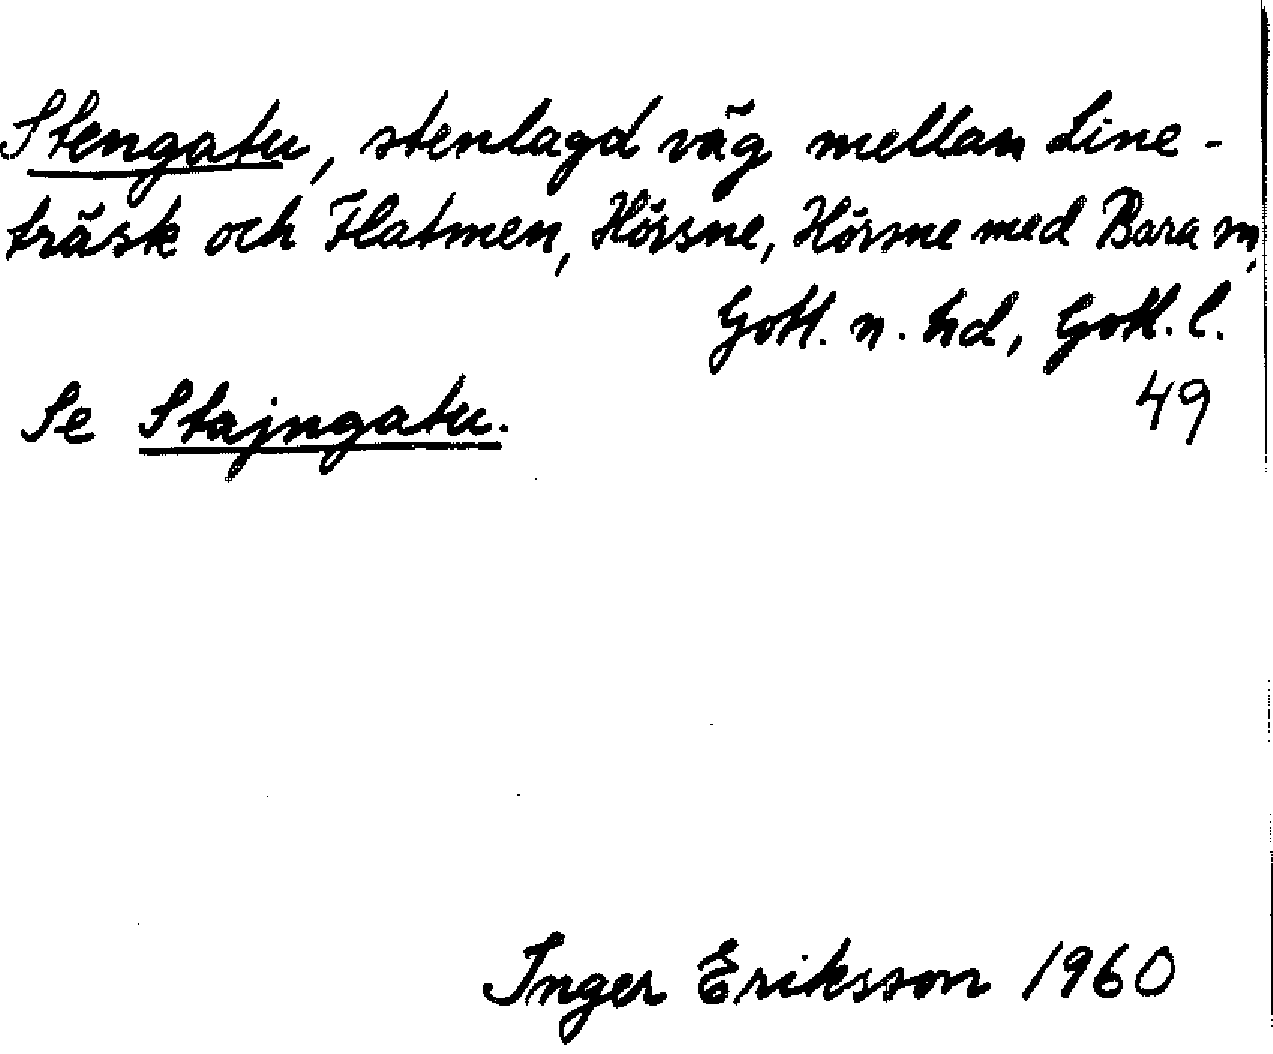 Stengatu, stenlagd väg mellan Line-
träsk och Flatmen, Hörsne, Hörsne med Bara sn,
Gotl. n. hd, Gotl. l.
49
Se Stajngatu.
Inger Eriksson 1960